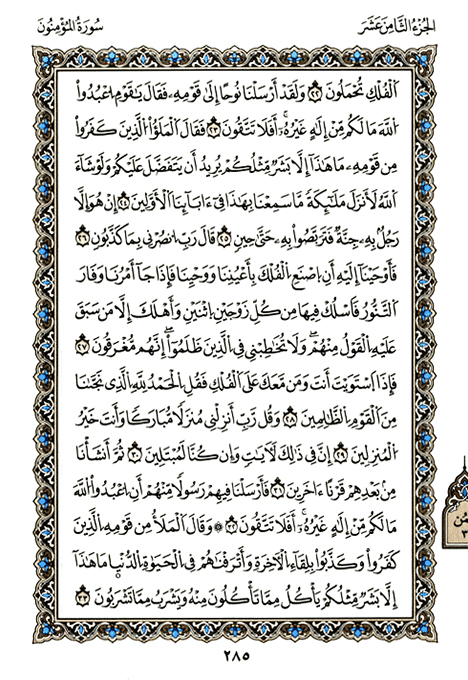 الجُزءُ الثَّامِنَ عَشَرَ
سُورَةُ المُؤْمِنُونَ
اَلْفُلْكِ تُحْمَلُونَ ﴿٢٢﴾ وَلَقَدْ أَرْسَلْنَا نُوحًا إِلَىٰ قَوْمِهِۦ فَقَالَ يَٰقَوْمِ اِعْبُدُواْ
اُللَّهَ مَا لَكُم مِّنْ إِلَٰهٍ غَيْرُهُۥٓ أَفَلَا تَتَّقُونَ ﴿٢٣﴾ فَقَالَ اَلْمَلَؤُاْ اُلَّذِينَ كَفَرُواْ
مِن قَوْمِهِۦ مَا هَٰذَآ إِلَّا بَشَرٌ مِّثْلُكُمْ يُرِيدُ أَن يَتَفَضَّلَ عَلَيْكُمْ وَلَوْ شَآءَ
اَللَّهُ لَأَنزَلَ مَلَٰٓئِكَةً مَّا سَمِعْنَا بِهَٰذَا فِىٓ ءَابَآئِنَا اَلْأَوَّلِينَ ﴿٢٤﴾ إِنْ هُوَ إِلَّا
رَجُلٌۢ بِهِۦ جِنَّةٌ فَتَرَبَّصُواْ بِهِۦ حَتَّىٰ حِينٍ ﴿٢٥﴾ قَالَ رَبِّ اِنصُرْنِى بِمَا كَذَّبُونِ ﴿٢٦﴾
فَأَوْحَيْنَآ إِلَيْهِ أَنِ اِصْنَعِ اِلْفُلْكَ بِأَعْيُنِنَا وَوَحْيِنَا فَإِذَا جَآ أَمْرُنَا وَفَارَ
اَلتَّنُّورُ فَاسْلُكْ فِيهَا مِن كُلِّ زَوْجَيْنِ اِثْنَيْنِ وَأَهْلَكَ إِلَّا مَن سَبَقَ
عَلَيْهِ اِلْقَوْلُ مِنْهُمْ وَلَا تُخَٰطِبْنِى فِى اِلَّذِينَ ظَلَمُوٓاْ إِنَّهُم مُّغْرَقُونَ ﴿٢٧﴾
فَإِذَا اَسْتَوَيْتَ أَنتَ وَمَن مَّعَكَ عَلَى اَلْفُلْكِ فَقُلِ اِلْحَمْدُ لِلَّهِ اِلَّذِى نَجَّىٰنَا
مِنَ اَلْقَوْمِ اِلظَّٰلِمِينَ ﴿٢٨﴾ وَقُل رَّبِّ أَنزِلْنِى مُنزَلًا مُّبَارَكًا وَأَنتَ خَيْرُ
اُلْمُنزِلِينَ ﴿٢٩﴾ إِنَّ فِى ذَٰلِكَ لَأٓيَٰتٍ وَإِن كُنَّا لَمُبْتَلِينَ ﴿٣٠﴾ ثُمَّ أَنشَأْنَا
مِنۢ بَعْدِهِمْ قَرْنًا ءَاخَرِينَ ﴿٣١﴾ فَأَرْسَلْنَا فِيهِمْ رَسُولًا مِّنْهُمْ أَنِ اِعْبُدُواْ اُللَّهَ
مَا لَكُم مِّنْ إِلَٰهٍ غَيْرُهُۥٓ أَفَلَا تَتَّقُونَ ﴿٣٢﴾ وَقَالَ اَلْمَلَأُ مِن قَوْمِهِ اِلَّذِينَ
كَفَرُواْ وَكَذَّبُواْ بِلِقَآءِ اِلْأٓخِرَةِ وَأَتْرَفْنَٰهُمْ فِى اِلْحَيَوٰةِ اِلدُّنْيَا مَا هَٰذَآ
إِلَّا بَشَرٌ مِّثْلُكُمْ يَأْكُلُ مِمَّا تَأْكُلُونَ مِنْهُ وَيَشْرَبُ مِمَّا تَشْرَبُونَ ﴿٣٣﴾
٢٨٥